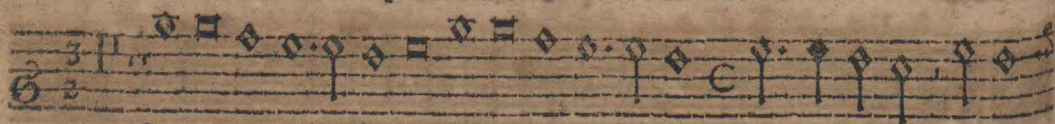 3
2
C